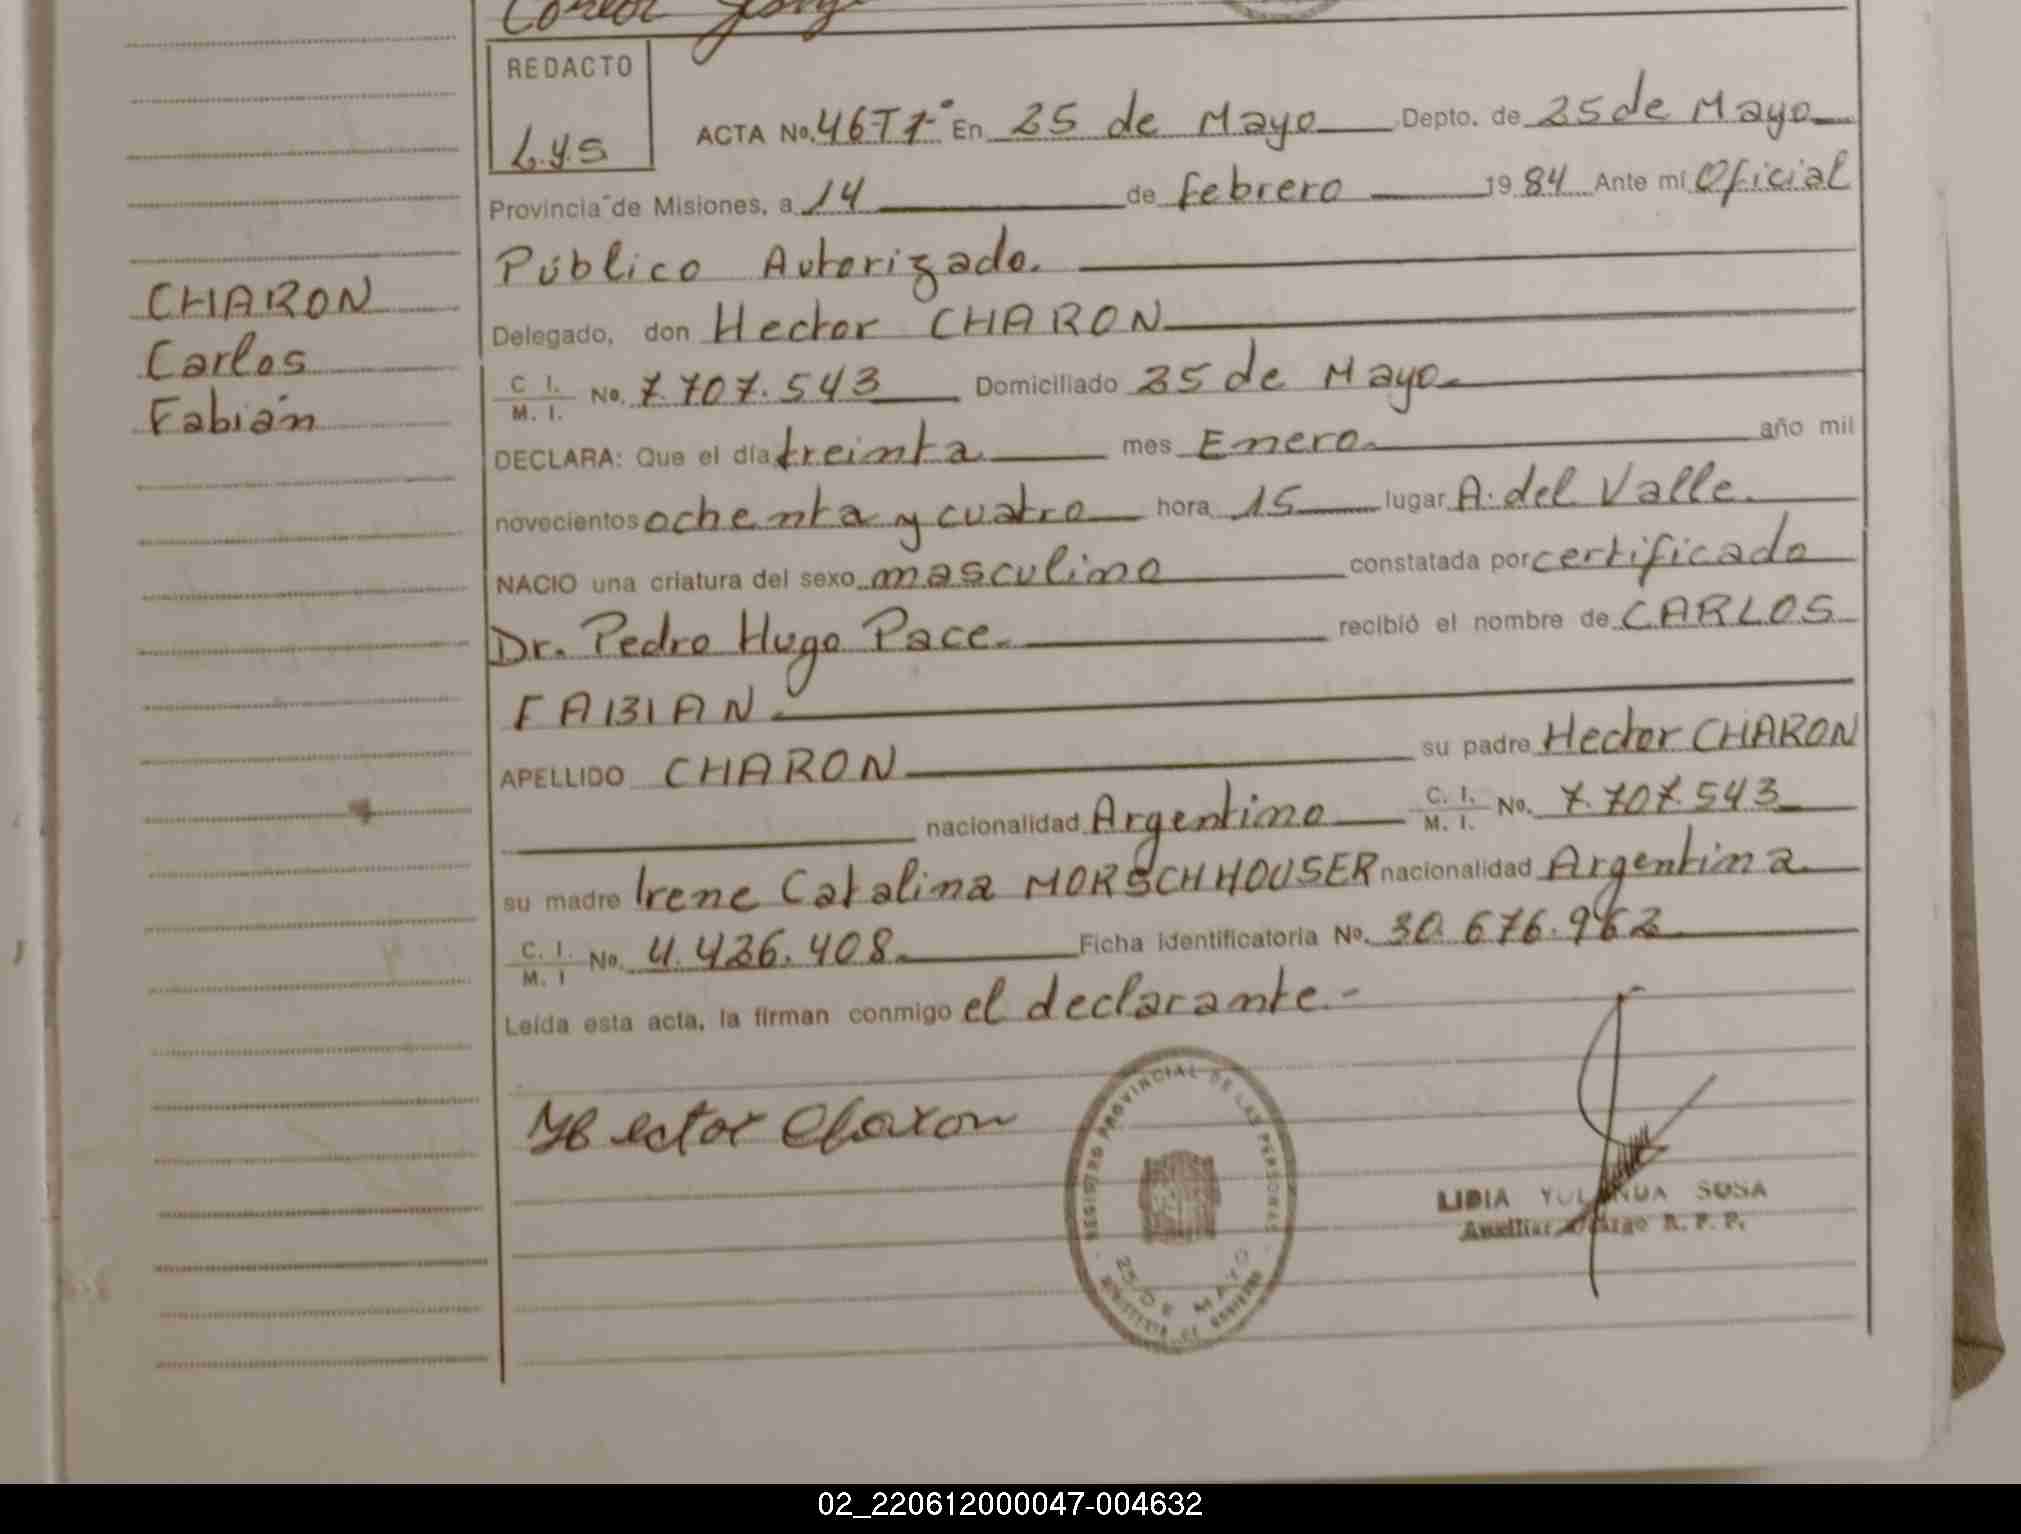 REDACTO
L.y.s
ACTA No. 46T1° En 25 de Mayo Depto. de 25 de Mayo
Provincia de Misiones, a 14 de febrero 19 84 Ante mí Oficial
Público Autorizado.
CHARON
Carlos
Fabián
Delegado, don Hector CHARON
C. I. / M. I. No. 7.707.543 Domiciliado 25 de Mayo
DECLARA: Que el día treinta mes Enero año mil
novecientos ochenta y cuatro hora 15 lugar A. del Valle.
NACIO una criatura del sexo masculino constatada por certificado
Dr. Pedro Hugo Pace. recibió el nombre de CARLOS
FABIAN
APELLIDO CHARON su padre Hector CHARON
nacionalidad Argentino C. I. / M. I. No. 7.707.543
su madre Irene Catalina MORSCHHOUSER nacionalidad Argentina
C. I. / M. I No. 4.426.408 Ficha identificatoria No. 30.676.962
Leída esta acta, la firman conmigo el declarante.-
Hector Charon
REGISTRO PROVINCIAL DE LAS PERSONAS
25 DE MAYO
MINISTERIO DE GOBIERNO
LIDIA YOLANDA SOSA
Auxiliar Cargo R. P. P.
02_220612000047-004632